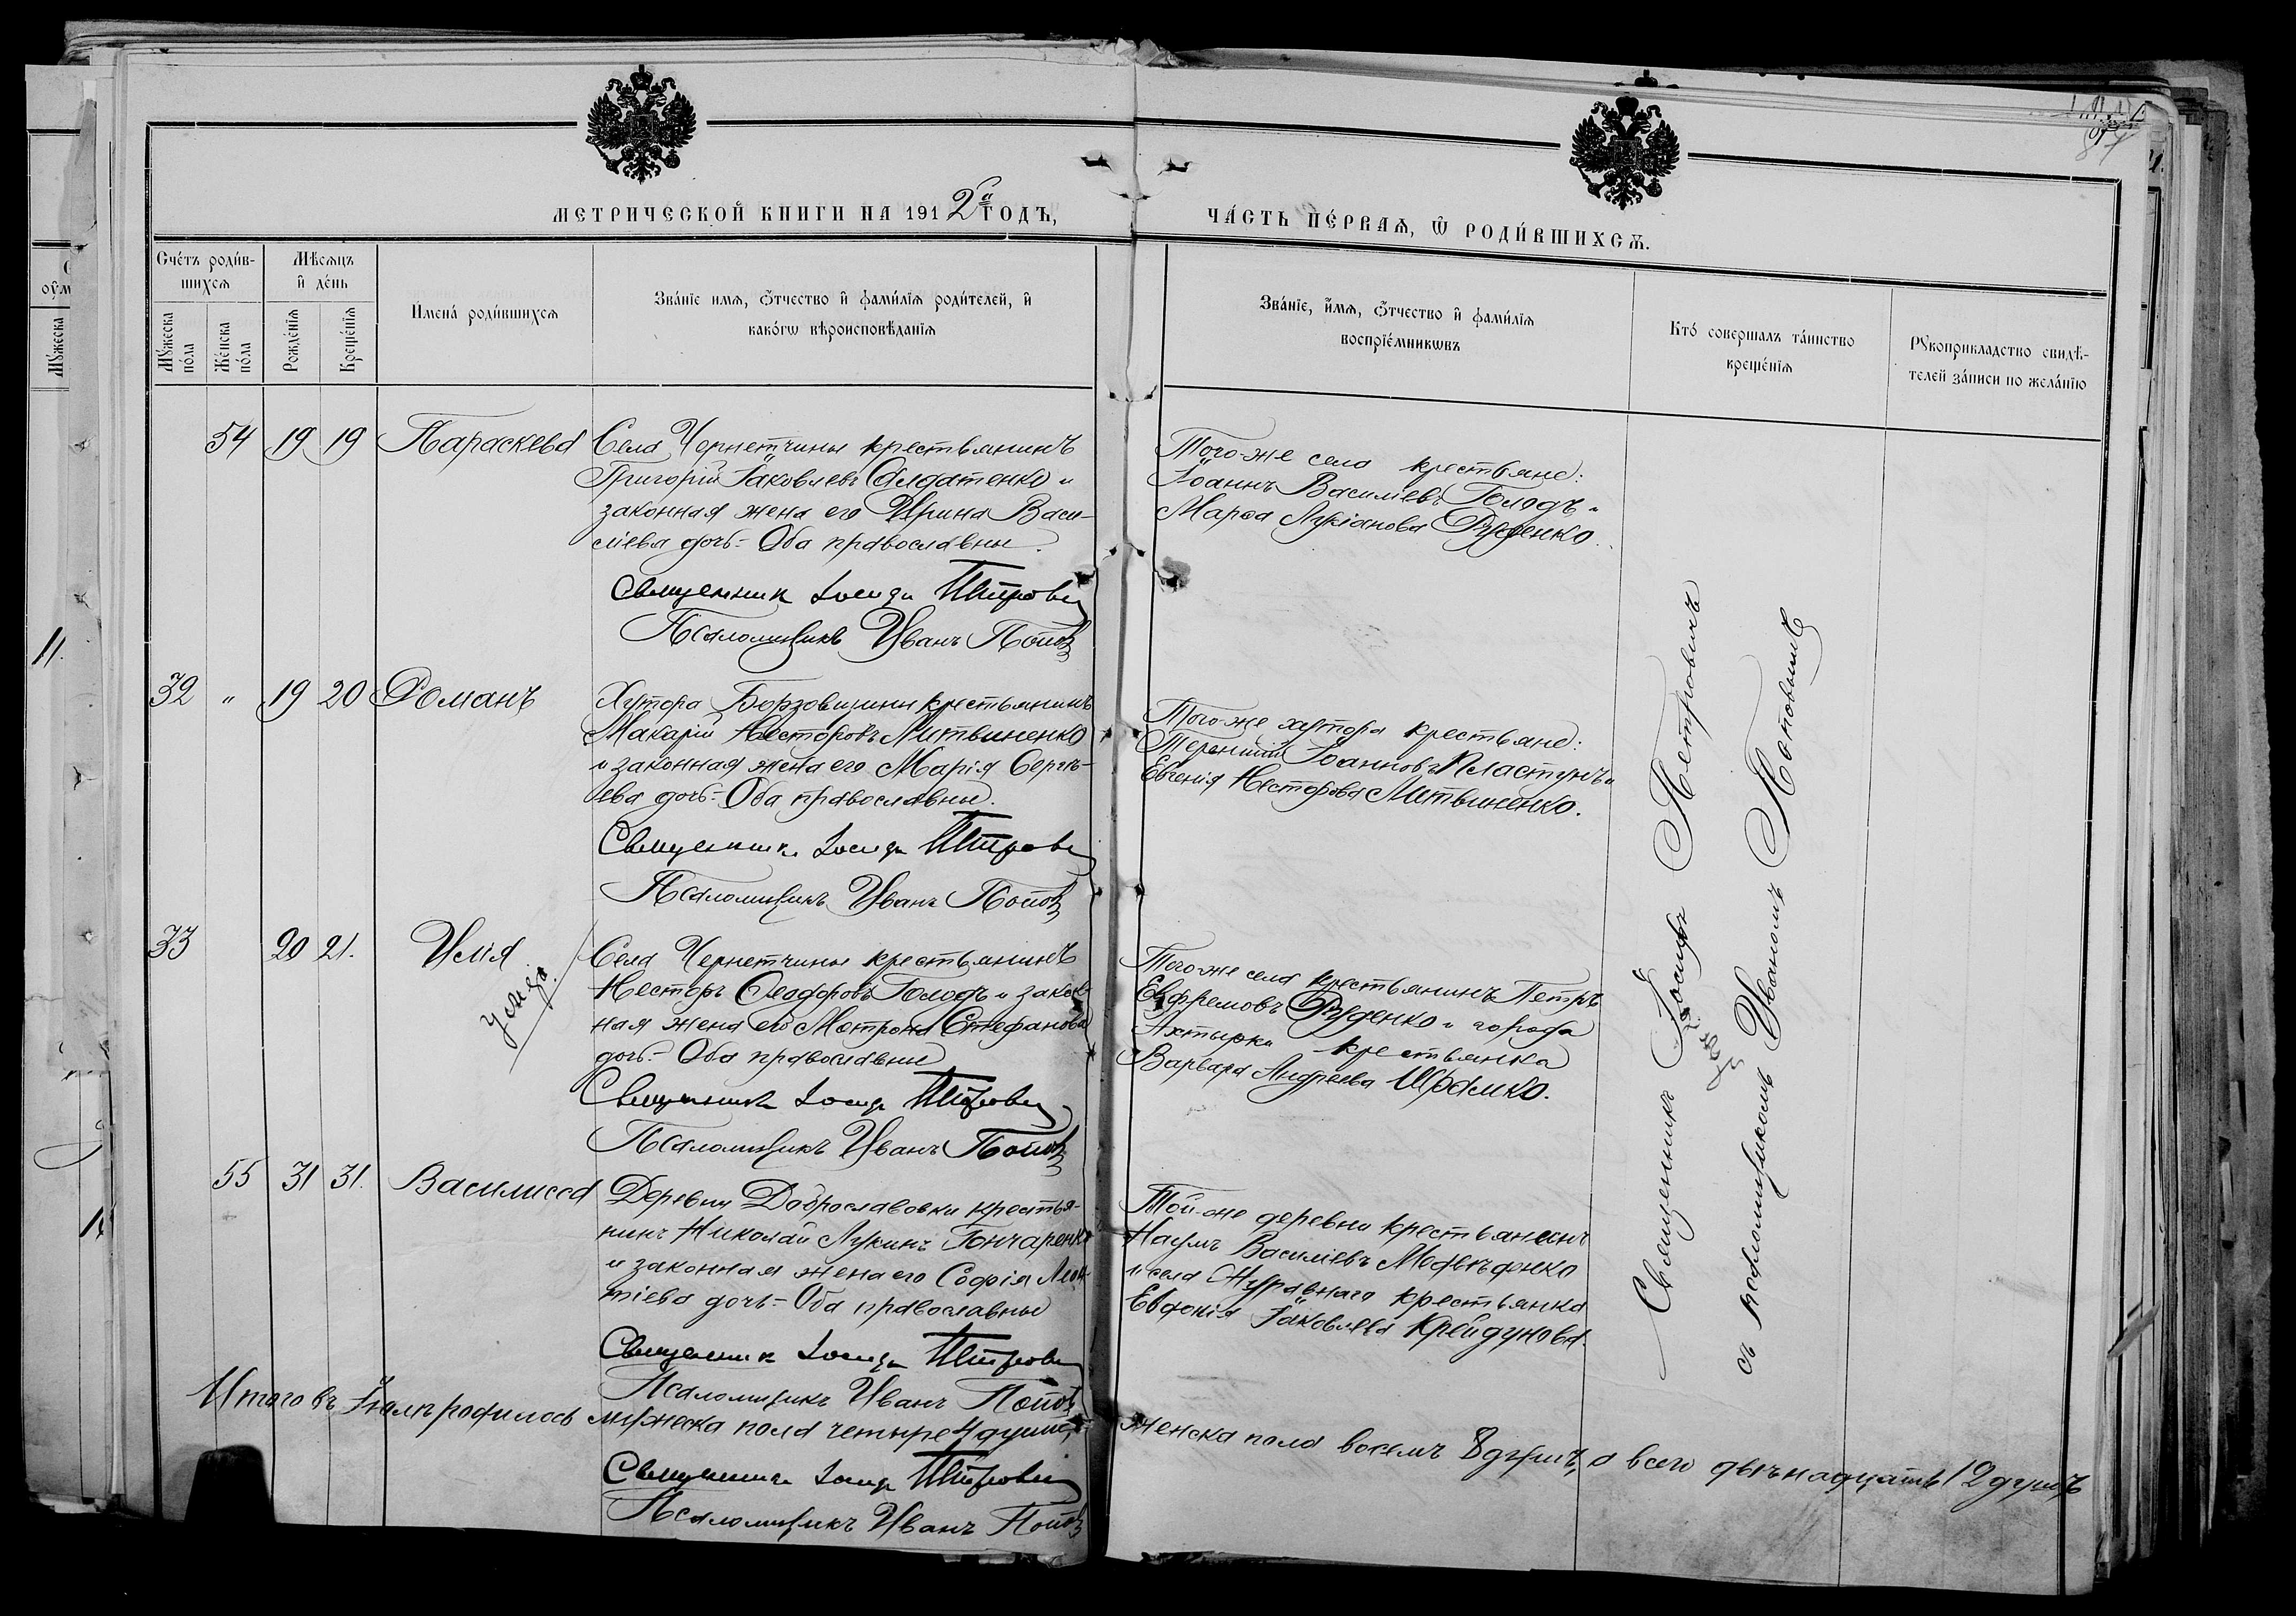 МЕТРИЧЕСКОЙ КНИГИ НА 1912й ГОДЪ,
ЧА́СТЬ ПЕ́РВАѦ, Ѡ҆ РОДИ́ВШИХСѦ.
Счетъ роди́вшихсѧ
Мꙋжеска по́ла
Же́нска по́ла
Мѣ́сѧцъ и҆ де́нь
Рожде́нїѧ
Креще́нїѧ
И҆мена̀ роди́вшихсѧ
Зва́нїе имѧ, ѻ҆́тчество и҆ фами́лїѧ роди́телей, и҆
како́гѡ вѣроисповѣ́данїѧ
Зва́нїе, и҆́мѧ, ѻ҆́тчество и҆ фами́лїѧ
воспрїе́мникѡвъ
Кто̀ совершалъ та́инство
креще́нїѧ
Рꙋкоприкладство свидѣ́-
телей за́писи по жела́нїю
54 19 19 Параскева
Села Чернетчины крестьянинъ
Григорій Іаковлевъ Солдатенко и
законная жена его Ирина Васи-
ліева дочь - Оба православны.
Священникъ Іосифъ Петровъ
Псаломщикъ Иванъ Поповъ
Того-же села крестьяне:
Іоаннъ Василіевъ Голодъ и
Марѳа Лукіанова Руденко.
32 " 19 20 Романъ
Хутора Борзовщины крестьянинъ
Макарій Несторовъ Литвиненко
и законная жена его Марія Сергіе-
ва дочь - Оба православны.
Священникъ Іосифъ Петровъ
Псаломщикъ Иванъ Поповъ
Того-же хутора крестьяне:
Терентій Іоанновъ Пластунъ и
Евгенія Несторова Литвиненко.
33 20 21. Илія
Села Чернетчины крестьянинъ
Несторъ Ѳеодоровъ Голодъ и закон-
ная жена его Матрона Стефанова
дочь - Оба православны
Священникъ Іосифъ Петровъ
Псаломщикъ Иванъ Поповъ
Того-же села крестьянинъ Петръ
Евфремовъ Руденко и города
Ахтырки крестьянка
Варвара Андреева
55 31 31. Василисса
Деревни Доброславовки крестья-
нинъ Николай Лукинъ Гончаренко
и законная жена его Софія Леон-
тіева дочь - Оба православны
Священникъ Іосифъ Петровъ
Псаломщикъ Иванъ Поповъ
Той-же деревни крестьянинъ
Наумъ Василіевъ Медвѣденко
и села Журавнаго крестьянка
Евдокія Іаковлева Крейдунова.
Священникъ Іосифъ Петровичъ
съ псаломщикомъ Иваномъ Поповымъ
Итого въ Іюлѣ родилось мужеска пола четыре 4 души, женска пола восемь 8 душъ, а всего двѣнадцать 12 душъ
Священникъ Іосифъ Петровъ
Псаломщикъ Иванъ Поповъ